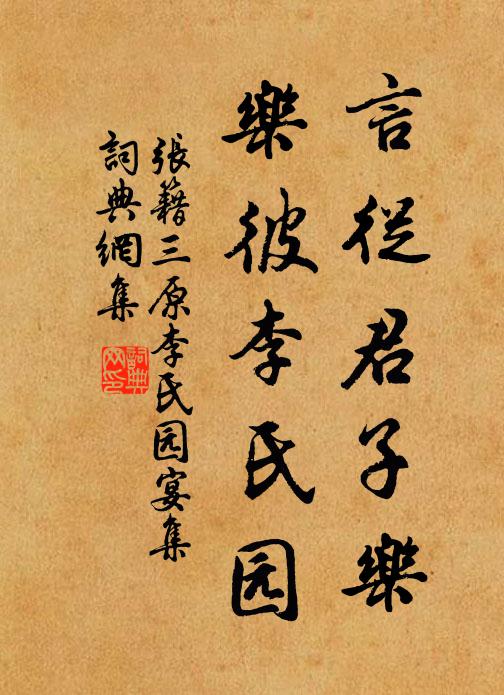 言從君子樂
樂彼李氏园
張籍三原李氏园宴集
詞典網集
詞典
网印